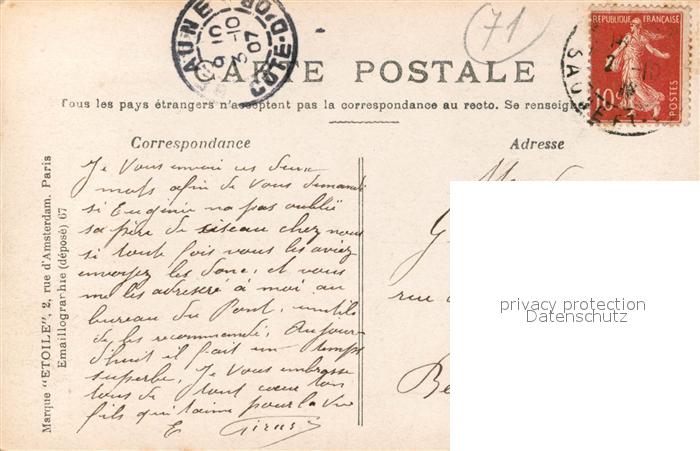 (71)
BEAUNE
CÔTE-D'OR
9 10
3-10
07
CARTE POSTALE
RÉPUBLIQUE FRANÇAISE
10
POSTES
Tous les pays étrangers n'acceptent pas la correspondance au recto. Se renseigne
Correspondance
Adresse
Je vous envoi ces deux
mots afin de vous demandé
si Eugénie na pas oublié
sa père de ciseau chez nous
si toute fois vous les aviez
envoyez les donc, et vous
me les adreseré à moi au
bureau du Pont, inutile
de les recommandé, Aujour
d'huit il fait un temps
superbe. Je Vous embrasse
tous de tout coeur ton
fils qui t'aime pour la vie
E
G
rue
Be
Marque "ETOILE", 2, rue d'Amsterdam. Paris
Emaillographie (déposé) 67
privacy protection
Datenschutz